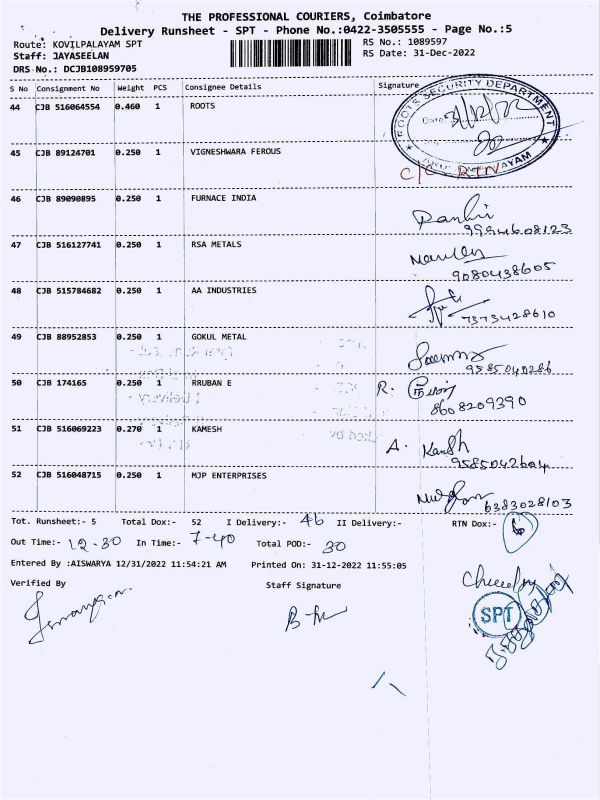 THE PROFESSIONAL COURIERS, Coimbatore
Delivery Runsheet - SPT - Phone No.:0422-3505555 - Page No.:5
Route: KOVILPALAYAM SPT
RS No.: 1089597
Staff: JAYASEELAN
RS Date: 31-Dec-2022
DRS No.: DCJB108959705
S No Consignment No Weight PCS Consignee Details Signature
44 CJB 516064554 0.460 1 ROOTS
ROOTS SECURITY DEPARTMENT
Date: 31/12/22
45 CJB 89124701 0.250 1 VIGNESHWARA FEROUS
C/C RTN
46 CJB 89090895 0.250 1 FURNACE INDIA
9994608123
47 CJB 516127741 0.250 1 RSA METALS
9080438605
48 CJB 515784682 0.250 1 AA INDUSTRIES
7373428610
49 CJB 88952853 0.250 1 GOKUL METAL
9585040286
50 CJB 174165 0.250 1 RRUBAN E
R.
8608209390
51 CJB 516069223 0.270 1 KAMESH
A. Kamesh
9585042604
52 CJB 516048715 0.250 1 MJP ENTERPRISES
6383028103
Tot. Runsheet:- 5 Total Dox:- 52 I Delivery:- 46 II Delivery:- RTN Dox:- 6
Out Time:- 12-30 In Time:- 7-40 Total POD:- 30
Entered By :AISWARYA 12/31/2022 11:54:21 AM Printed On: 31-12-2022 11:55:05
Verified By Staff Signature
SPT